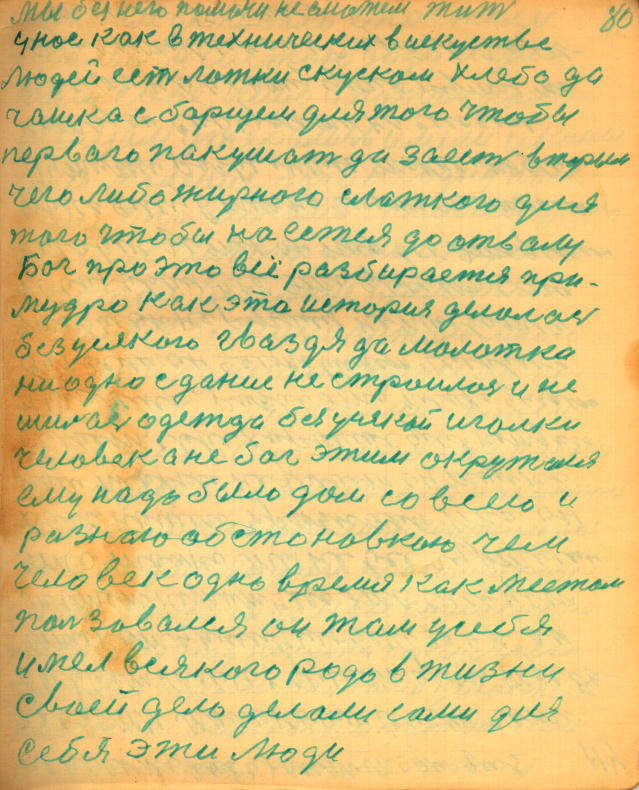 80
мы без него помочи не сможем жит
у нос как в технических в искустве
людей ест лотки с куском хлебо да
чашка с борщем для того чтобы
перваго пакушат да заест вторым
чего либо жирного слаткого для
того чтобы на сетея до отвалу
Бог про это всё разбирается при-
мудро как эта история делолас
без усякого гваздя да молотка
ни одно сдание не строилос и не
шилас одежда без усякой иголки
человека не бог этим окружился
ему надо было дом со всего и
разнаю обстоновкою чем
человек одно время как местом
ползовался он там у себя
имел всякого родо в жизни
своей дело делоли сами для
себя эти люди